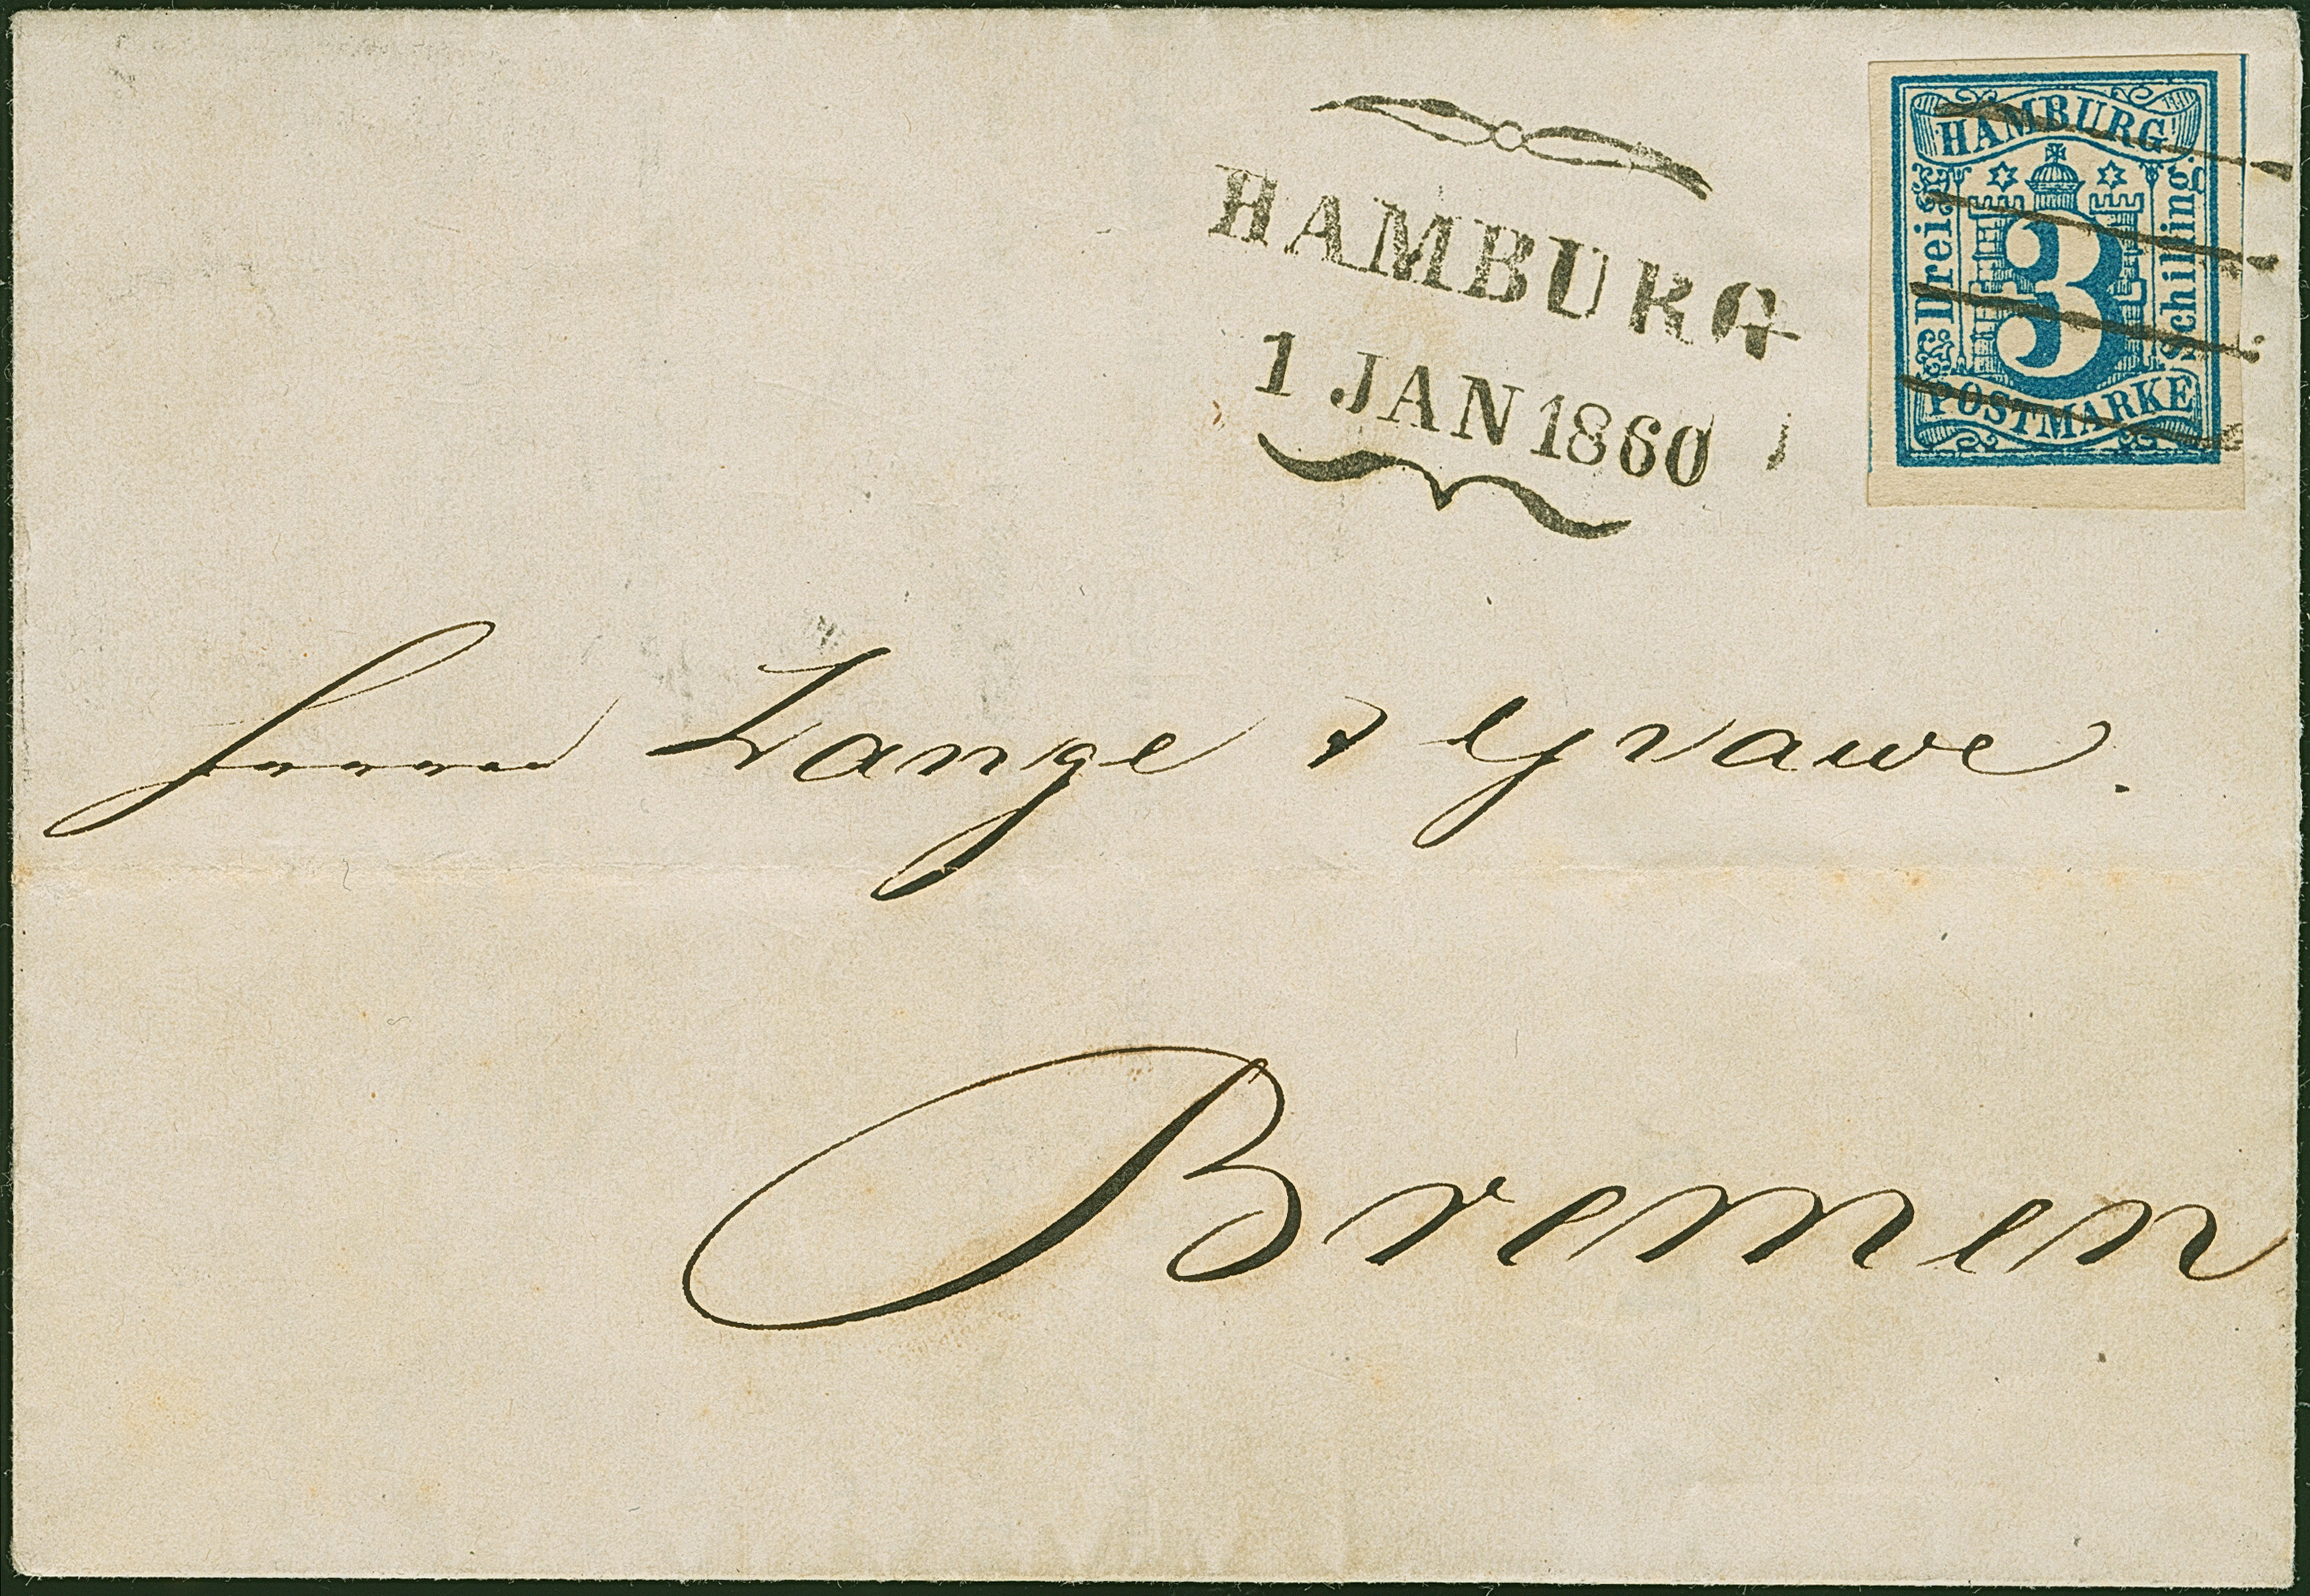 HAMBURG
1 JAN 1860
HAMBURG
Drei
3
Schilling
POSTMARKE
Herrn Lange & Grawe.
Bremen